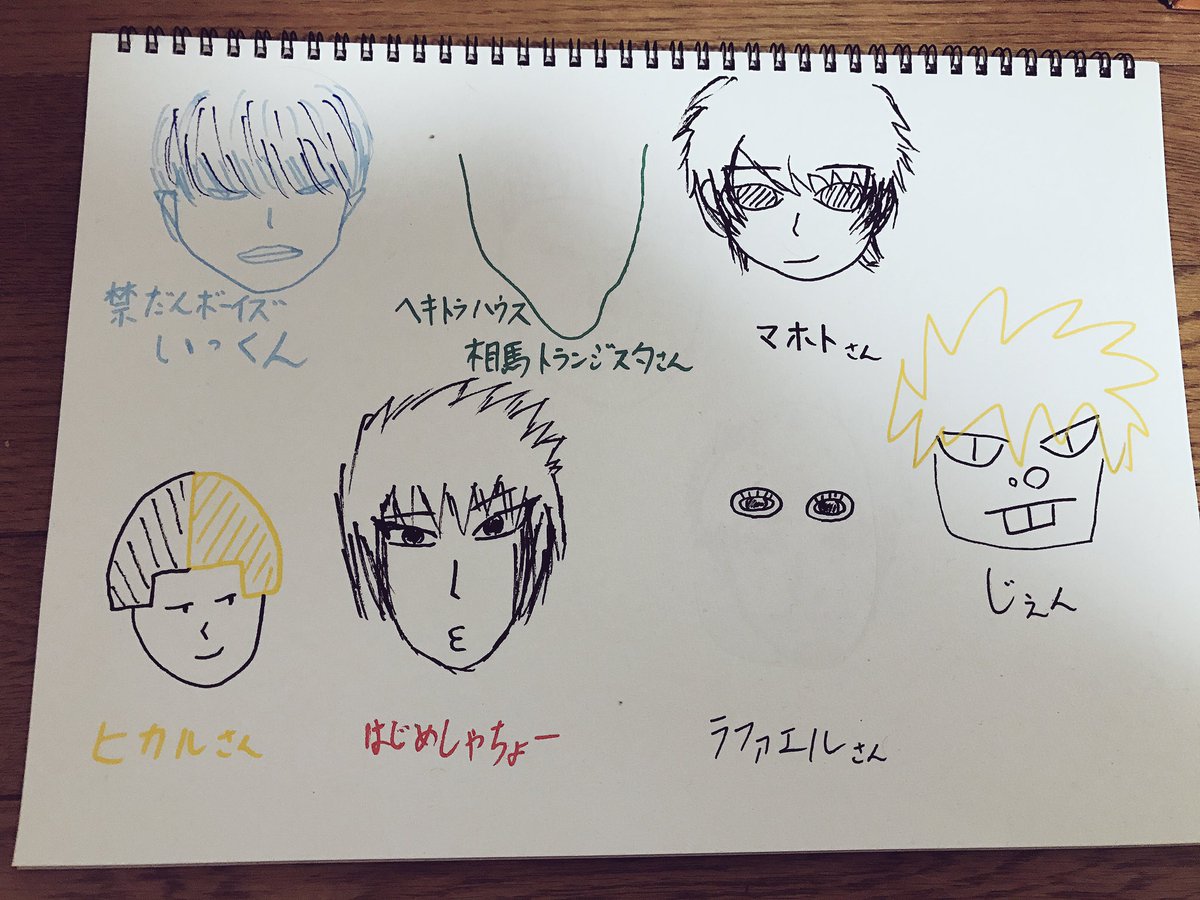 禁だんボーイズ
いっくん
ヘキトラハウス
相馬トランジスタさん
マホトさん
じぇん
ヒカルさん
はじめしゃちょー
ラファエルさん